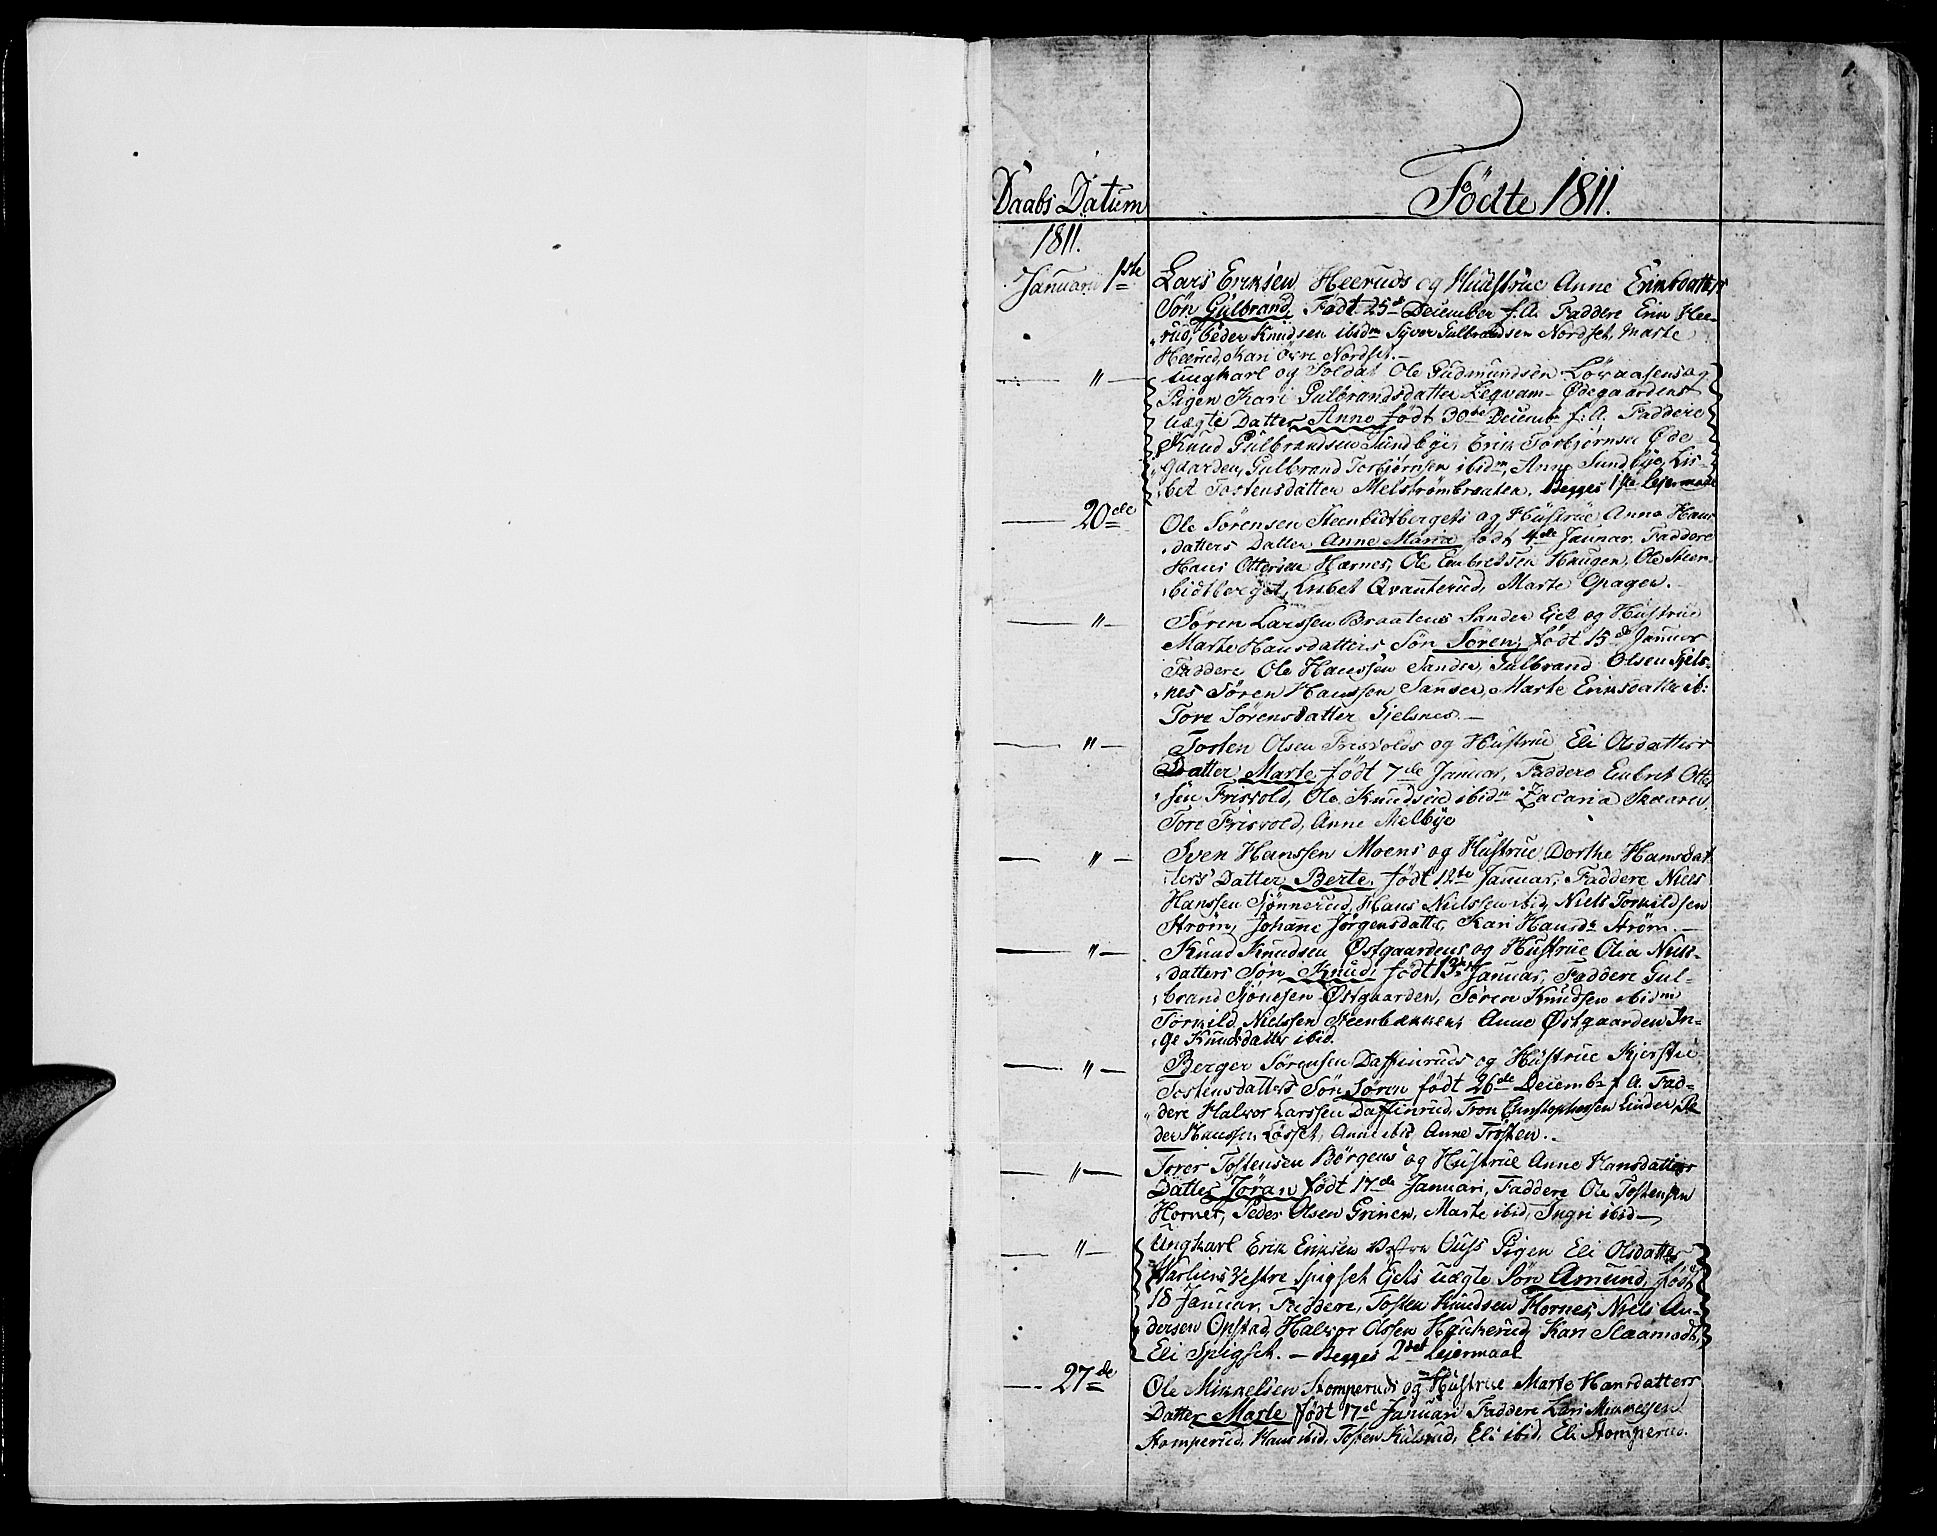 1
Daabs Datum
Fødte 1811.
1811.
Januarii 1ste
Lars Eriksen Heeruds og Hustrue Anne Eriksdatters
Søn Gulbrand Født 25de December f.A. Faddere Erik Hee-
rud, Peder Knudsen ibidm Syver Gulbrandsen Nordset, Marte
Heerud, Kari øvre Nordset.-
"
Ungkarl og Soldat Ole Gudmundsen Løvaasens og
Pigen Kari Gulbrandsdatter Legvam-Ødegaardens
Uægte Datter Anne født 30te Decembr f:A. Faddere
Knud Gulbrandsen Sundbye, Erik Torbiørnsen Øde-
gaarden, Gulbrand Torbiørnsen ibidm, Anne Sundbye, Lis-
bet Tostensdatter Melstrømbraaten. Begges 1ste Lejermaal
20de
Ole Sørensen Steenbidtbergets og Hustrue Anne Hans-
datters Datter Anne Maria født 4de Januar, Faddere
Hans Ottersen Hærnes, Ole Embretsen Haugen, Ole Steen-
bidtberget, Lisbet Qvanterud, Marte Opager.-
"
Søren Larssen Braatens Sander Eje og Hustrue
Marte Hansdatters Søn Søren, født 15de Januar
Faddere Ole Hanssen Sander, Gulbrand Olsen Gjels-
nes Søren Hanssen Sander, Marte Eriksdatter ib:
Tore Sørensdatter Gjelsnes.-
"
Tosten Olsen Frisvolds og Hustrue Eli Olsdatters
Datter Marte født 7de Januar, Faddere Embret Otter
sen Frisvold, Ole Knudsen ibidm Zacaria Skaaren
Tore Frisvold, Anne Melbye
"
Sven Hanssen Moens og Hustrue Dorthe Hansdat
ters Datter Berte, født 12te Januar, Faddere Niels
Hanssen Sønnerud, Hans Nielssen ibid, Niels Torkildsen
Strøm, Johane Jørgensdatter, Kari Hansdr Strøm.-
"
Knud Knudsen Østgaardens og Hustrue Olia Niels-
datters Søn Knud, født 13de Januar, Faddere Gul-
brand Siønssen Østgaarden, Søren Knudsen ibidm
Torkild Nielssen Steenbækken, Anne Østgaarden In-
ge Knudsdatter ibid.
"
Berger Sørensen Daffinruds og Hustrue Kjersti
Tostensdatters Søn Søren født 26de Decembr f.A. Fad-
dere Halvor Larssen Daffinrud, Tron Christophersen Linder, Pe
der Hanssen Løsset, Anne ibid Anne Trosten.-
"
Torer Tostensen Børgens og Hustrue Anne Hansdatters
Datter Jøran født 17de Januari, Faddere Ole Tostensen
Hornet, Peder Olsen Grinen, Marte ibid, Ingri ibid-
"
Ungkarl Erik Eriksen Østre Ouss Pigen Eli Olsdatter
Harliens Vestre Spigset Ejets uægte Søn Amund, født
18 Januar, Faddere, Tosten Knudsen Hornes, Niels An-
dersen Opstad, Halvor Olssen Haukerud, Kari Slaamodt,
Eli Spigset.- Begges 2det Lejermaal
27de
Ole Mikkelsen Stomperuds og Hustrue Marte Hansdatters
Datter Marte født 17de Januari Faddere Lars Mikkelsen
Stomperud, Hans ibid, Tosten Kulsrud, Eli ibid, Eli Stomperud.